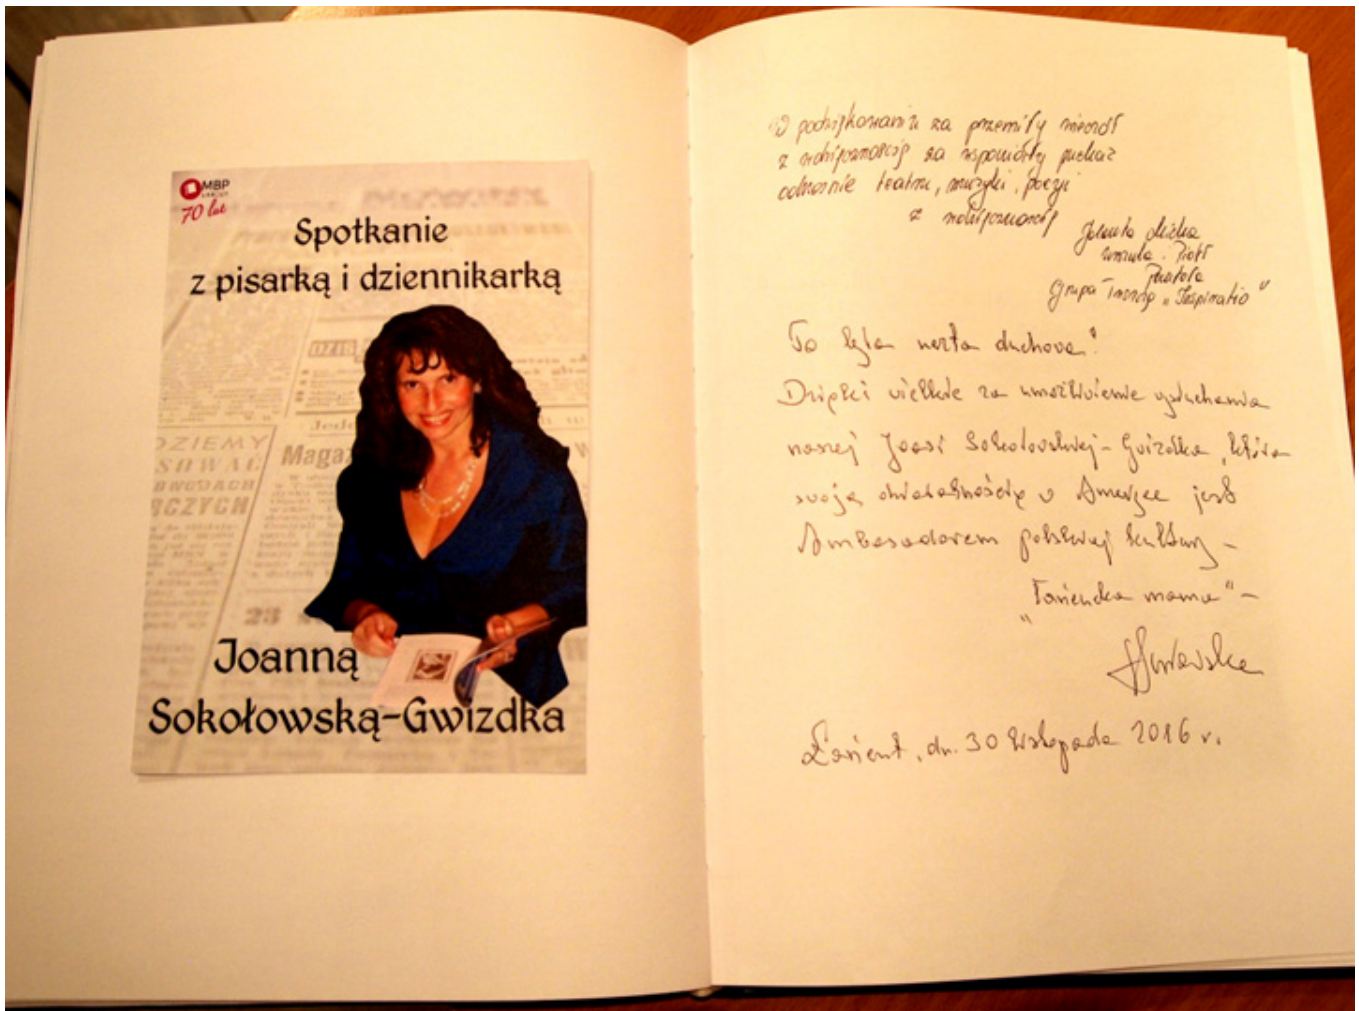 MBP
70 lat
Spotkanie
z pisarką i dziennikarką
DZIEMY
Magaz
23
Joanną
Sokołowską-Gwizdka
W podziękowaniu za przemiły wieczór
z wdzięcznością za wspaniały
odnośnie teatru, muzyki, poezji
z wdzięcznością
Jolanta
Urszula Piotr
Grupa "Inspiratio"
To była uczta duchowa"
Dzięki wielkie za umożliwienie wysłuchania
naszej Joasi Sokołowskiej-Gwizdka, która
swoją działalnością w Ameryce jest
Ambasadorem polskiej kultury –
"Łańcucka mama" –
Łańcut, dn. 30 listopada 2016 r.